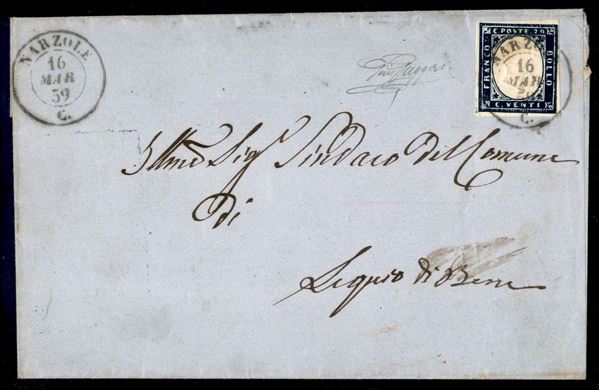 NARZOLE
16
MAR
59
C.
C. POSTE. 20
FRANCO
BOLLO
C. VENTI
NARZOLE
16
MAR
59
C.
Illmo Sigr Sindaco del Comune
Di
Lequio di Bene